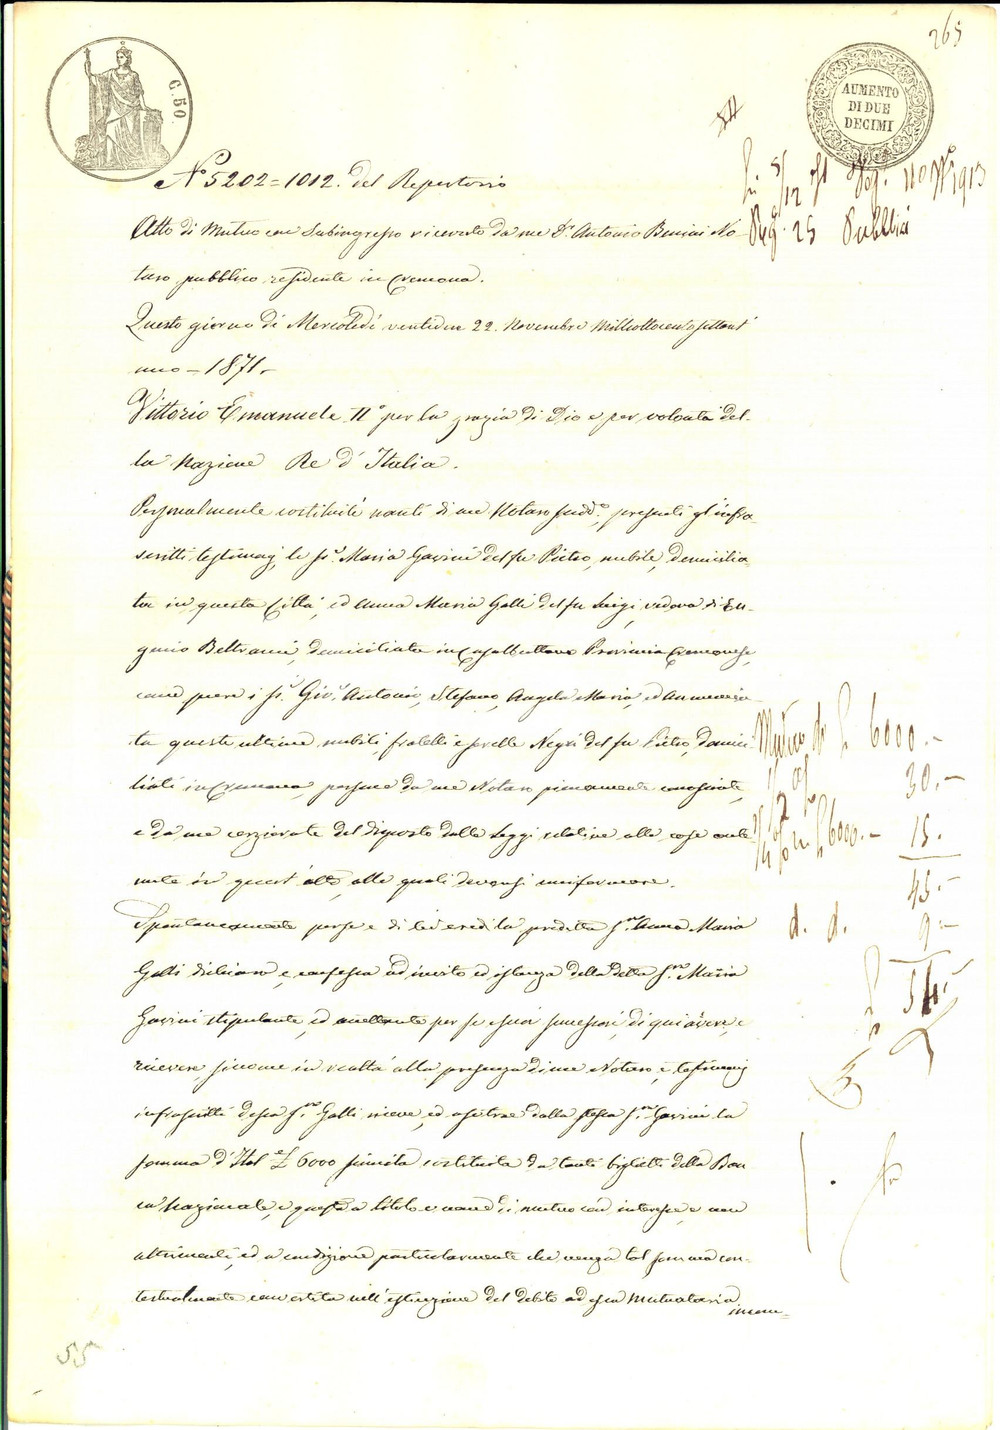 265
C. 50
AUMENTO
DI DUE
DECIMI
N° 5202 = 1012. del Repertorio
Atto di Mutuo con Subingresso ricevuto da me Dr. Antonio Bonini No-
taro pubblico residente in Cremona.
Questo giorno di Mercoledì ventidue 22. Novembre Milleottocentosettant'
uno - 1871.
Vittorio Emanuele II° per la grazia di Dio e per volontà del-
la Nazione Re d'Italia.
Personalmente costituite nanti di me Notaro sudd.°, presenti gl'infra-
scritti testimonj, le Sr.e Maria Gavini del fu Pietro, nubile, domicilia-
ta in questa Città, ed Anna Maria Galli del fu Luigi, vedova di Eu-
genio Beltrami, domiciliata in Casalbuttano Provincia Cremonese,
come pure i Sr.i Gio. Antonio, Stefano, Angela Maria, ed Annuncia-
ta queste ultime nubili, fratelli e sorelle Negri del fu Pietro, domici-
liati in Cremona, persone da me Notaro pienamente conosciute,
e da me cerziorate del disposto dalle Leggi relative alle cose conte-
nute in quest'atto, alle quali devonsi uniformare.
Spontaneamente per se e di lei eredi la predetta Sr.a Anna Maria
Galli dichiara e confessa ad invito ed istanza della detta Sr.a Maria
Gavini stipulante, ed accettante per se e suoi successori, di qui avere, e
ricevere, siccome in realtà alla presenza di me Notaro, e testimonj
infrascritti dessa Sr.a Galli riceve, ed ritrae dalla stessa Sr.a Gavini la
somma d'Ital.e £ 6000 seimila costituita da tanti biglietti della Ban-
ca Nazionale, e questa a titolo e causa di mutuo con interesse, e non
altrimenti, ed a condizione particolarmente che venga tal somma con-
testualmente convertita nell'estinzione del debito ad essa Mutuataria
incom-
Pag. 25 Pubblici
Mutuo di £ 6000.-
30.-
6000.- 15.
45.-
d. d. 9.-
54.-
55